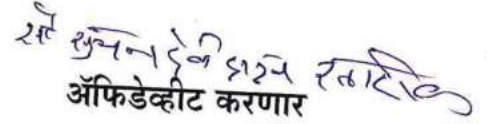 सौ सुमन देवीदास
ॲफिडेव्हीट करणार